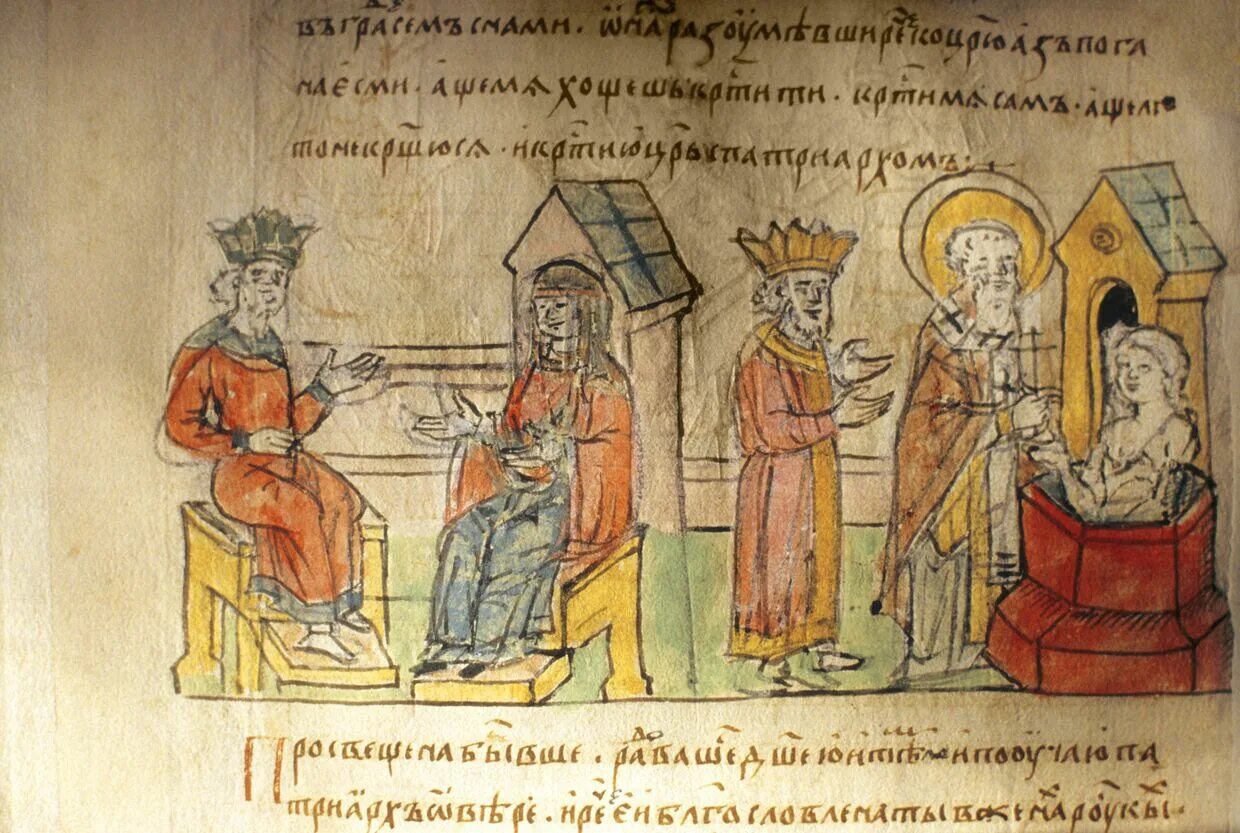 въградѣсемъснами · ѡнаразоумѣвшире҇чкоцр҃юазъпога
наесми · ащемяхощешькрт҃ити · крт҃имясамъ · ащели
тонекрщ҃юся · икрт҃июцр҃ьспатриархомъ ·
Просвещенабывше · радовашеⷣшеюитѣлѡмъипооучаюпа
триархъѡвѣре · ире҇чеиблг҃ословленатывженахъроуски ·